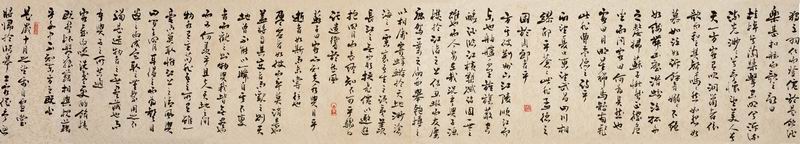 羽化而登仙於是飲酒
樂甚扣舷而歌之歌曰
桂棹兮蘭槳擊空明兮泝
流光渺渺兮予懷望美人兮
天一方客有吹洞簫者依
歌而和之其聲嗚嗚然如怨如
慕如泣如訴餘音嫋嫋不絕
如縷舞幽壑之潛蛟泣孤舟
之嫠婦蘇子愀然正襟危
坐而問客曰何為其然也
客曰月明星稀烏鵲南飛
此非曹孟德之詩乎
西望夏口東望武昌山川相
繆鬱乎蒼蒼此非孟德之
困於周郎者乎
方其破荊州下江陵順流而
東也舳艫千里旌旗蔽空
釃酒臨江橫槊賦詩固一世之
雄也而今安在哉況吾與子漁
樵於江渚之上侶魚蝦而友麋
鹿駕一葉之扁舟舉匏樽
以相屬寄蜉蝣於天地渺滄
海之一粟哀吾生之須臾羨
長江之無窮挾飛仙以遨遊
抱明月而長終知不可乎驟得
託遺響於悲風
蘇子曰客亦知夫水與月乎
逝者如斯而未嘗往也
盈虛者如彼而卒莫消長也
蓋將自其變者而觀之則天
地曾不能以一瞬自其不變
者而觀之則物與我皆無盡也
而又何羨乎且夫天地之間
物各有主苟非吾之所有雖一
毫而莫取惟江上之清風與
山間之明月耳得之而為聲目
遇之而成色取之無禁用之不
竭是造物者之無盡藏也而
吾與子之所共適
客喜而笑洗盞更酌肴核
既盡杯盤狼籍相與枕藉
乎舟中不知東方之既白